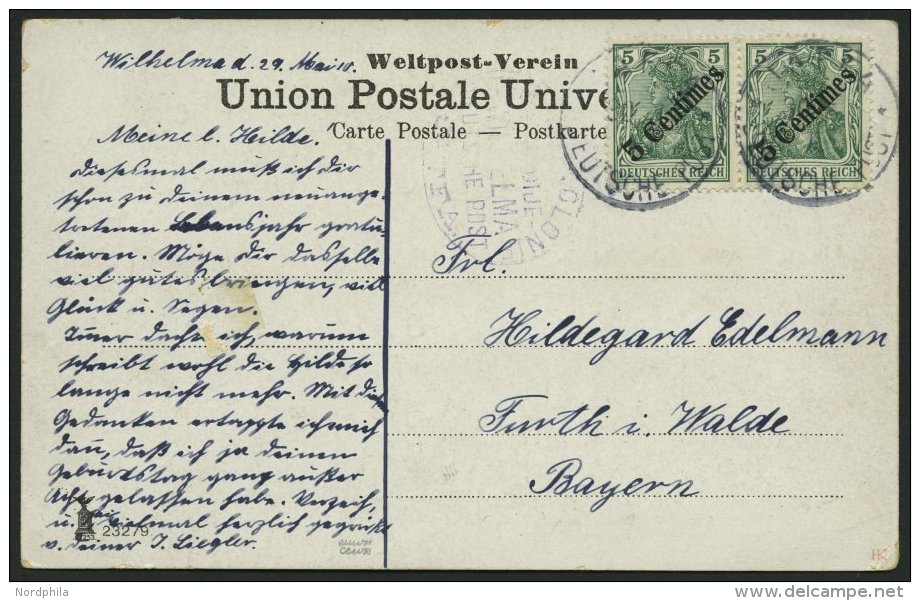 Wilhelma d. 29. Mai 10.
Weltpost-Verein
Union Postale Unive
Carte Postale — Postkarte
5 5 5 5
5 Centimes 5 Centimes
DEUTSCHES REICH DEUTSCHES REICH
DEUTSCHE
Meine l. Hilde.
Diesesmal muß ich dir
schon zu deinem neuange-
tretenen Lebensjahr gratu-
lieren. Möge dir dasselbe
viel gutes bringen, viel
Glück u. Segen.
Immer dachte ich, warum
schreibt wohl die Hilde so
lange nicht mehr. Mit diesen
Gedanken ertappte ich mich
dann, daß ich ja deinen
Geburtstag ganz außer
Acht gelassen habe. Verzeih,
u. sei vielmal herzlich gegrüßt
v. deiner J. Ziegler.
Frl.
Hildegard Edelmann
Furth i. Walde
Bayern
23279
Nordphila
delcampe.net